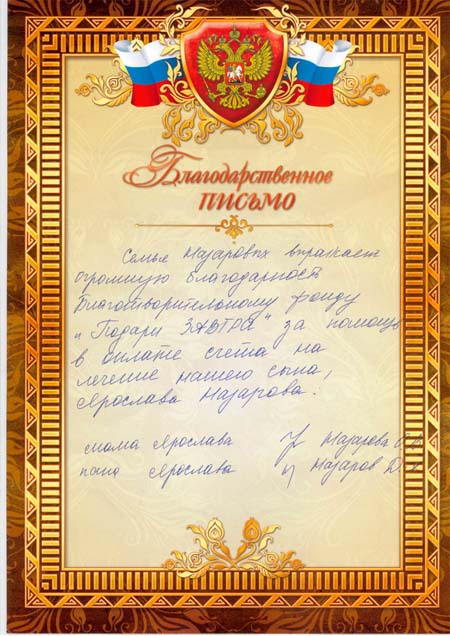 Благодарственное
письмо
Семья Назаровых выражает
огромную благодарность
Благотворительному фонду
„Подари ЗАВТРА" за помощь
в оплате счета на
лечение нашего сына,
Ярослава Назарова.
мама Ярослава Назарова
папа Ярослава Назаров Д.